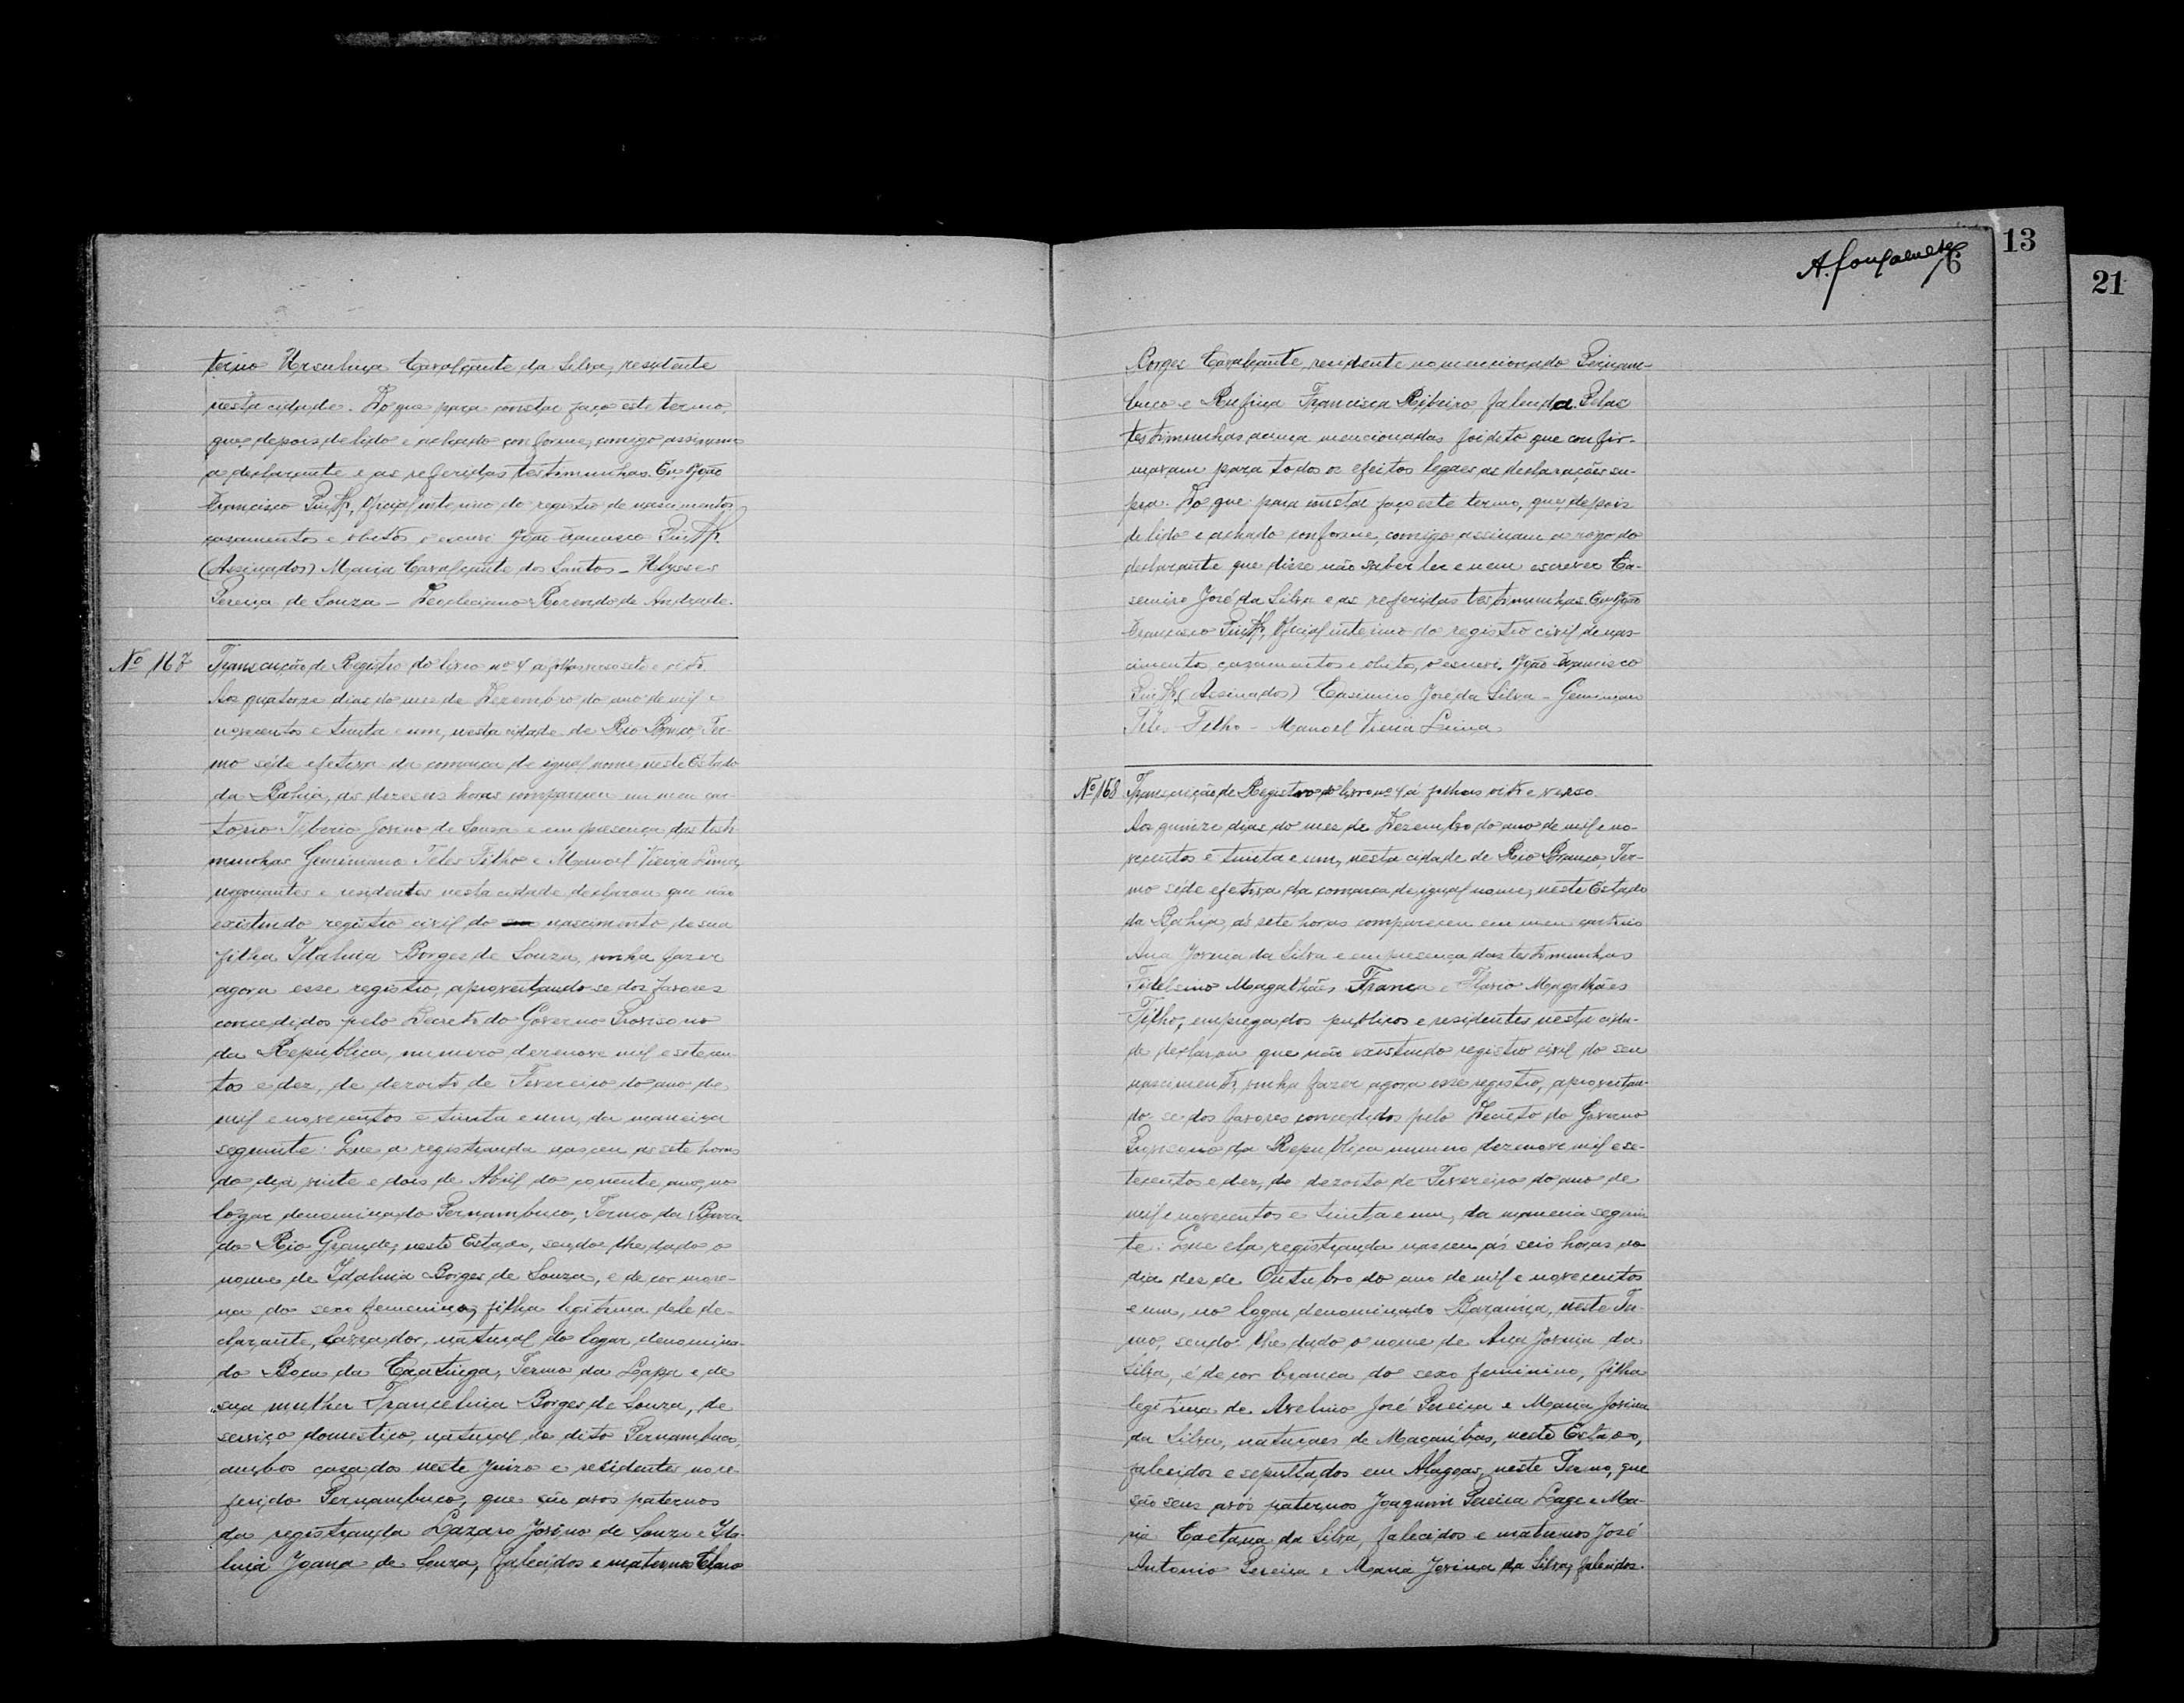 terno Ursulina Cavalcante da Silva, residente
nesta cidade. Do que para constar faço este termo,
que depois de lido e achado conforme, comigo assinam
a declarante e as referidas testimunhas. Eu João
Francisco, Oficial interino do registro de nascimentos
casamentos e obitos o escrevi João Francisco
(Assinados) Maria Cavalcante dos Santos - Ulysses
Pereira de Souza - Rosendo de Andrade.
Nº 167 Transcrição de Registro do livro nº 4 á folhas verso sete e oito
Aos quatorze dias do mes de Dezembro do ano de mil e
novecentos e trinta e um, nesta cidade de Rio Branco, Ter-
mo séde efetiva da comarca de igual nome, neste Estado
da Bahia, as horas compareceu em meu car-
torio Tiberio Jovino de Souza e em presença das testi-
munhas Geminiano Teles Filho e Manoel Vieira Lima,
negociantes e residentes nesta cidade declarou que não
existindo registro civil do nascimento de sua
filha Idalina Borges de Souza, vinha fazer
agora esse registro, aproveitando-se dos favores
concedidos pelo Decreto do Governo Provisorio
da Republica, numero dezenove mil e setecen-
tos e dez, de dezoito de Fevereiro do ano de
mil e novecentos e trinta e um, da maneira
seguinte: Que a registranda nasceu as sete horas
do dia vinte e dois de Abril do corrente ano, no
logar denominado Pernambuco, Termo da Barra
do Rio Grande, neste Estado, sendo-lhe dado o
nome de Idalina Borges de Souza, e de cor more-
na do sexo femenino, filha legitima dele de-
clarante, lavrador, natural do logar denomina-
do Boca da Caatinga, Termo da Lapa e de
sua mulher Francelina Borges de Souza, de
serviço domestico, natural do dito Pernambuco,
ambos casados neste Juizo e residentes no re-
ferido Pernambuco, que são avos paternos
da registranda Lazaro Jovino de Souza e Ida-
lina Joana de Souza, falecidos e maternos
A. Gonçalves
6
13
21
Borges Cavalcante, residente no mencionado Pernam-
buco e Rufina Francisca Ribeiro falecida. Pelas
testimunhas acima mencionadas foi dito que confir-
mavam para todos os efeitos legaes as declarações su-
pra. Do que para constar faço este termo, que depois
de lido e achado conforme, comigo assinam a rogo do
declarante que disse não saber ler e nem escrever Ca-
semiro José da Silva e as referidas testimunhas. Eu João
Francisco, Oficial interino do registro civil de nas-
cimentos, casamentos e obitos, o escrevi. João Francisco
(Assinados) Casimiro José da Silva - Geminiano
Teles Filho - Manoel Vieira Lima
Nº 168 Transcrição de Registro do livro nº 4 á folhas oito e verso
Aos quinze dias do mes de Dezembro do ano de mil e no-
vecentos e trinta e um, nesta cidade de Rio Branco, Ter-
mo séde efetiva da comarca de igual nome, neste Estado
da Bahia, ás sete horas compareceu em meu cartorio
Ana Jovina da Silva e em presença das testimunhas
Magalhães Franca e Flavio Magalhães
Filho, empregados publicos e residentes nesta cida-
de declarou que não existindo registro civil do seu
nascimento, vinha fazer agora esse registro, aproveitan-
do-se dos favores concedidos pelo Decreto do Governo
Provisorio da Republica numero dezenove mil e se-
tecentos e dez, de dezoito de Fevereiro do ano de
mil e novecentos e trinta e um, da maneira seguin-
te: Que ela registranda nasceu ás seis horas do
dia dez de Outubro do ano de mil e novecentos
e um, no logar denominado Barauna, neste Ter-
mo, sendo-lhe dado o nome de Ana Jovina da
Silva, é de cor branca do sexo feminino, filha
legitima de Avelino José Pereira e Maria Jovina
da Silva, naturaes de Macaúbas, neste Estado,
falecidos e sepultados em Alagoas, neste Termo, que
são seus avós paternos Joaquim Pereira Lage e Ma-
ria Caetana da Silva, falecidos e maternos José
Antonio Pereira e Maria Jovina da Silva, falecidos.